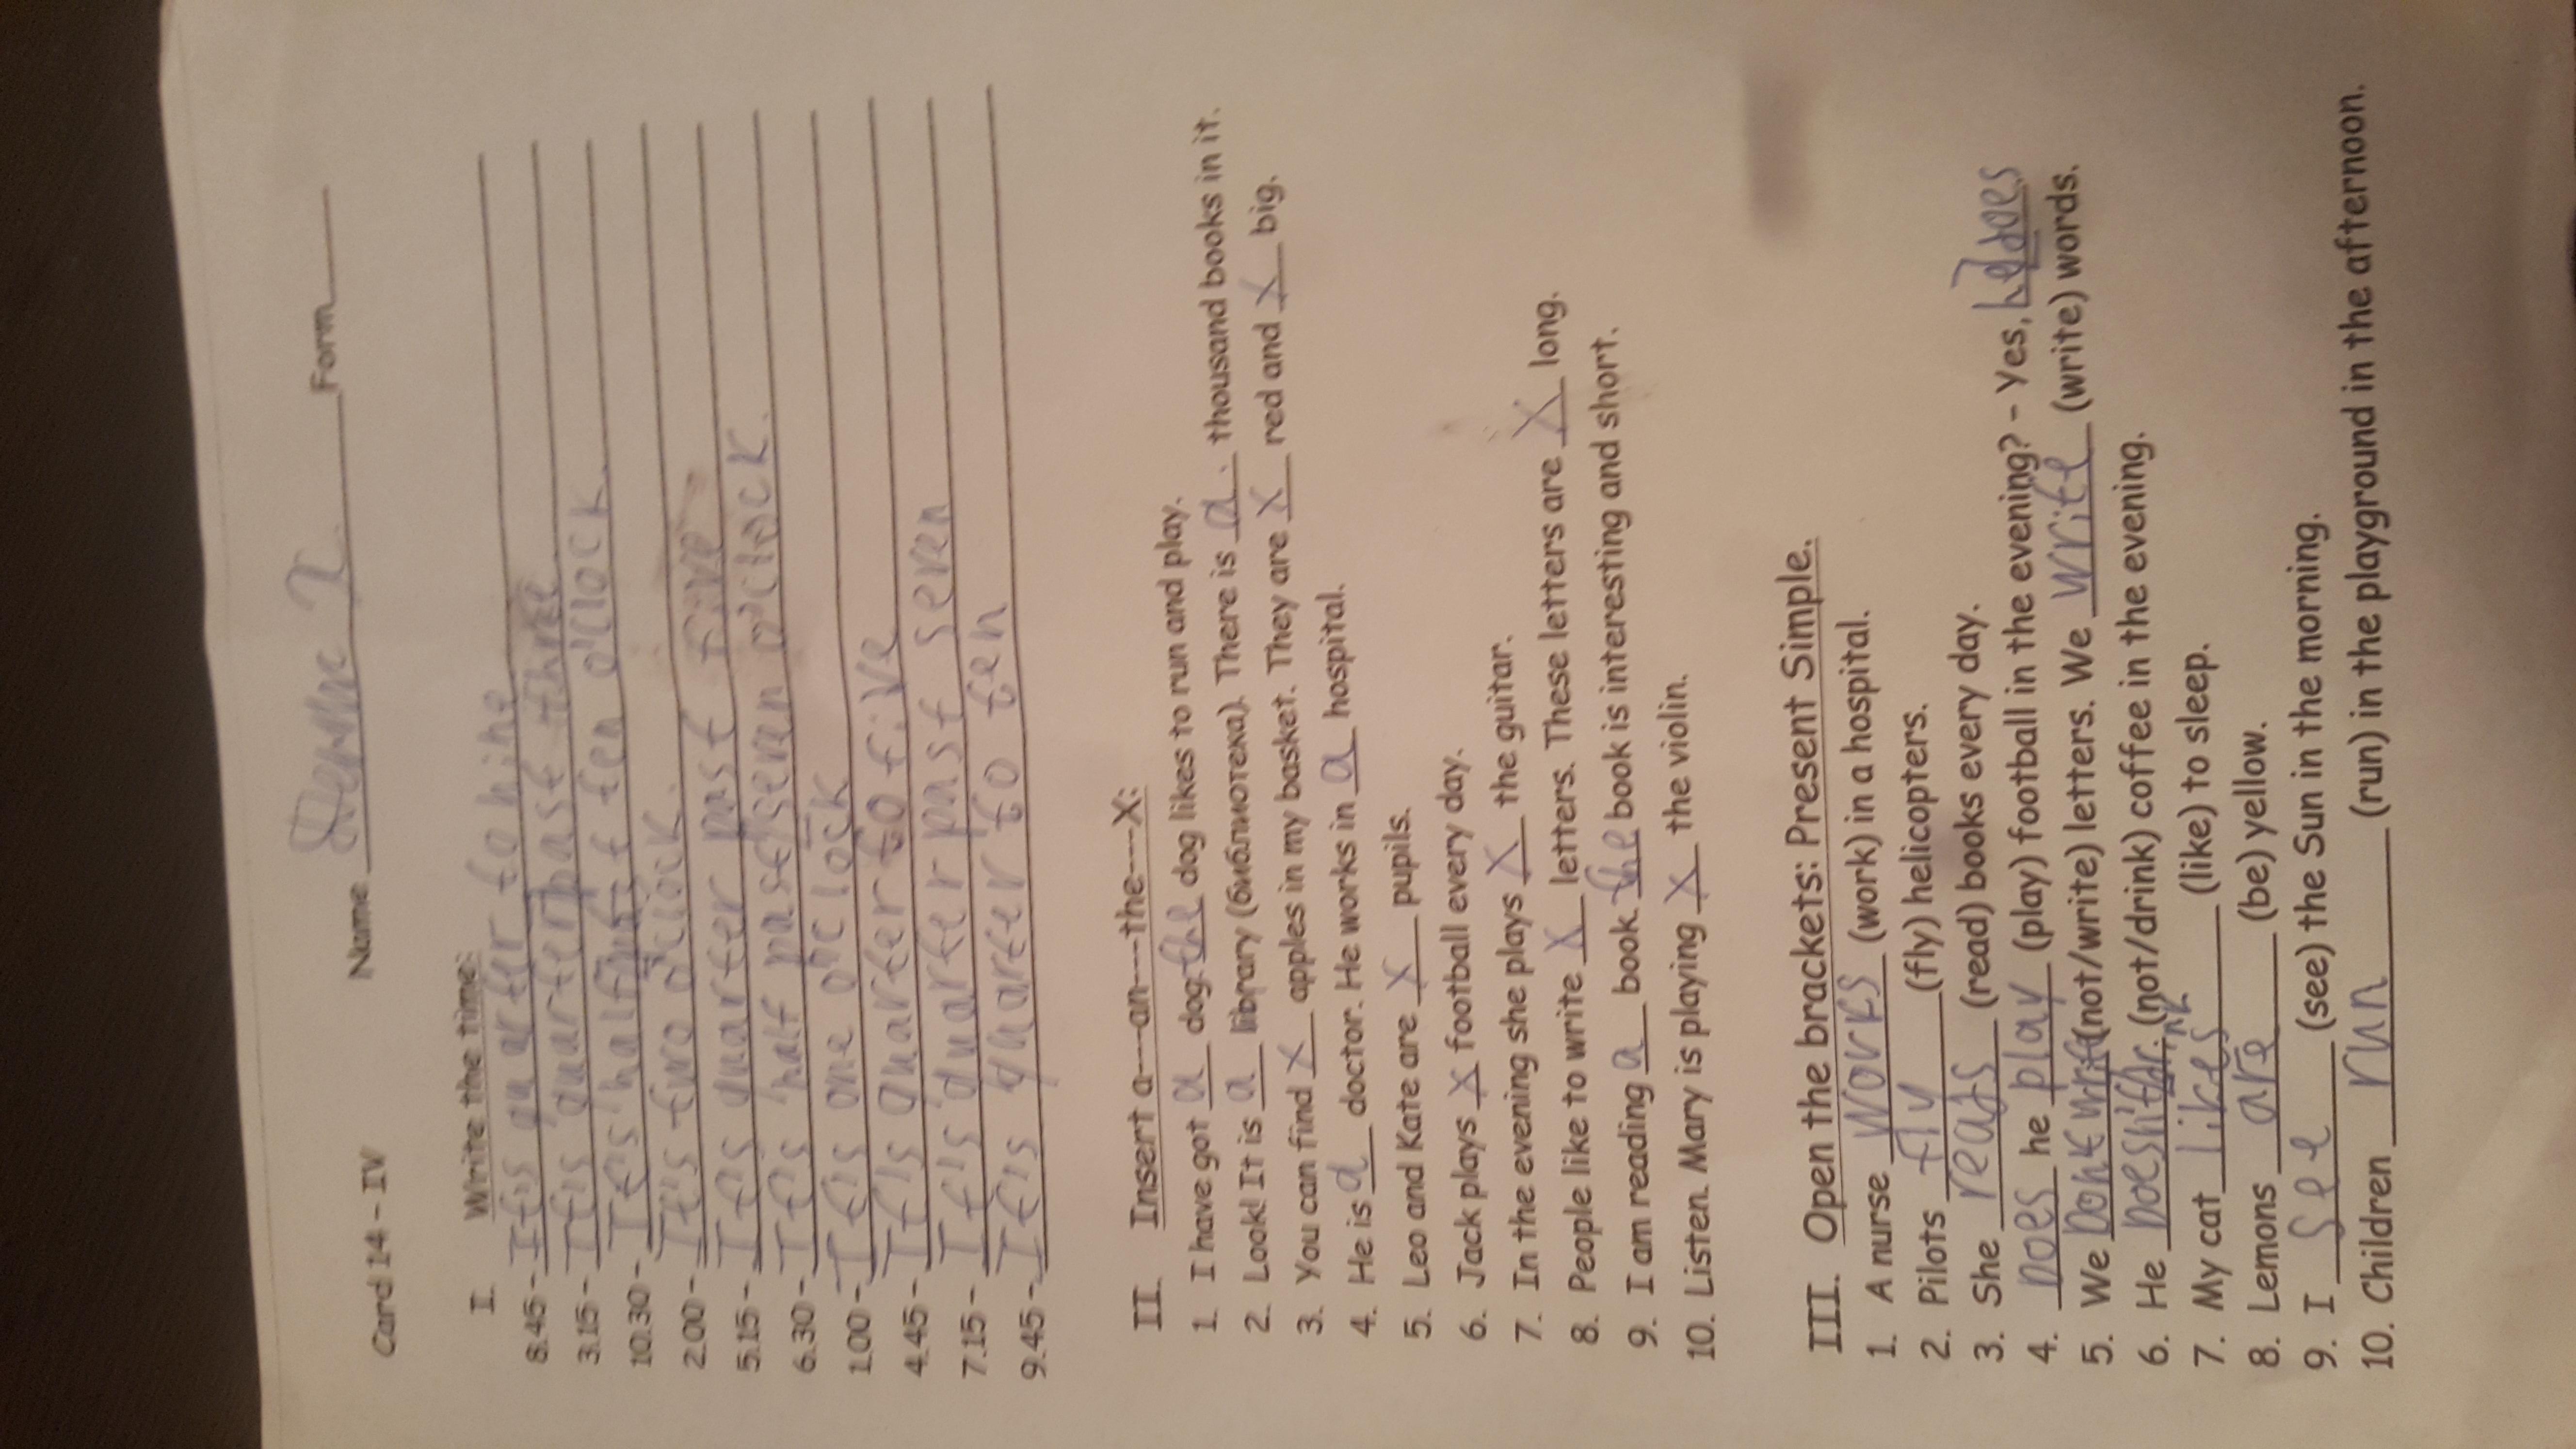 Card 14 – IV Name Form
I. Write the time:
8.45 – It's quarter to nine
3.15 – It's quarter past three
10.30 – It's half past ten o'clock.
2.00 – It's two o'clock.
5.15 – It's quarter past five
6.30 – It's half past seven o'clock.
1.00 – It's one o'clock
4.45 – It's quarter to five
7.15 – It's quarter past seven
9.45 – It's quarter to ten
II. Insert a---an---the---X:
1. I have got a dog. the dog likes to run and play.
2. Look! It is a library (библиотека). There is a thousand books in it.
3. You can find x apples in my basket. They are x red and x big.
4. He is a doctor. He works in a hospital.
5. Leo and Kate are x pupils.
6. Jack plays x football every day.
7. In the evening she plays x the guitar.
8. People like to write x letters. These letters are x long.
9. I am reading a book. the book is interesting and short.
10. Listen. Mary is playing x the violin.
III. Open the brackets: Present Simple.
1. A nurse works (work) in a hospital.
2. Pilots fly (fly) helicopters.
3. She reads (read) books every day.
4. Does he play (play) football in the evening? – Yes, he does
5. We Dont write (not/write) letters. We write (write) words.
6. He Doesnit drink (not/drink) coffee in the evening.
7. My cat likes (like) to sleep.
8. Lemons are (be) yellow.
9. I see (see) the Sun in the morning.
10. Children run (run) in the playground in the afternoon.